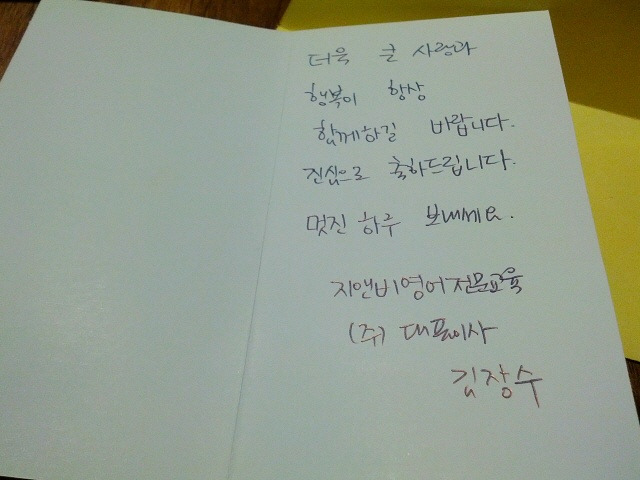 더욱 큰 사랑과
행복이 항상
함께하길 바랍니다.
진심으로 축하드립니다.
멋진 하루 보내세요.
지앤비영어전문교육
(주) 대표이사
김장수